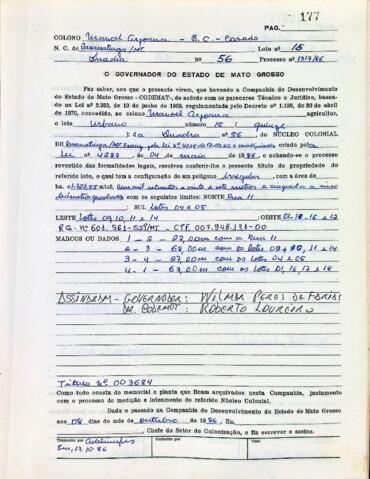 PAG. 177
COLONO Manoel - B.C. - Casado
N. C. de /MT. Lote nº 15
Quadra Nº 56 Processo nº 1317/86
O GOVERNADOR DO ESTADO DE MATO GROSSO
Faz saber, aos que o presente virem, que havendo a Companhia de Desenvolvimento
do Estado de Mato Grosso - CODEMAT, de acôrdo com os pareceres Técnico e Jurídico, basea-
da na Lei nº 2.933, de 10 de junho de 1969, regulamentada pelo Decreto nº 1.138, de 30 de abril
de 1970, concedido, ao colono Manoel agricultor,
o lote Urbano número 15 quinze
da Quadra nº 56, do NÚCLEO COLONIAL
DE /MT. criado pela
Lei nº 4287, de 04 de maio de 1986, e achando-se o processo
revestido das formalidades legais, resolveu conferir-lhe o presente título de propriedade do
referido lote, o qual tem a configuração de um polígono irregular, com a área de
ha. e
com os seguintes limites: NORTE Rua 11
; SUL Lotes 04 e 05
LESTE Lotes 09, 10, 11 e 14 ; OESTE 01-18-16 e 17
RG-nº 601.961-SSP/MT - CPF. 007.948.131-00
MARCOS OU DADOS 1 - 2 - 27,00m com a Rua 11
2 - 3 - 68,00m com os lotes 09, 10, 11 e 14
3 - 4 - 27,00m com os Lotes 04 e 05
4 - 1 - 63,00m com os lotes 01, 16, 17 e 18
ASSINARAM - GOVERNADOR: WILMAR PERES DE FARIAS
DIR. CODEMAT: ROBERTO LOUREIRO
Título nº 003684
Como tudo consta do memorial e planta que ficam arquivados nesta Companhia, juntamente
com o processo de medição e loteamento do referido Núcleo Colonial.
Dado e passado na Companhia de Desenvolvimento do Estado de Mato Grosso
aos 08 dias do mês de outubro de 1986, Eu,
, Chefe do Setor de Colonização, o fiz escrever e assino.
Transcrito por
Conferido por
Visto
Em, 17.10.86